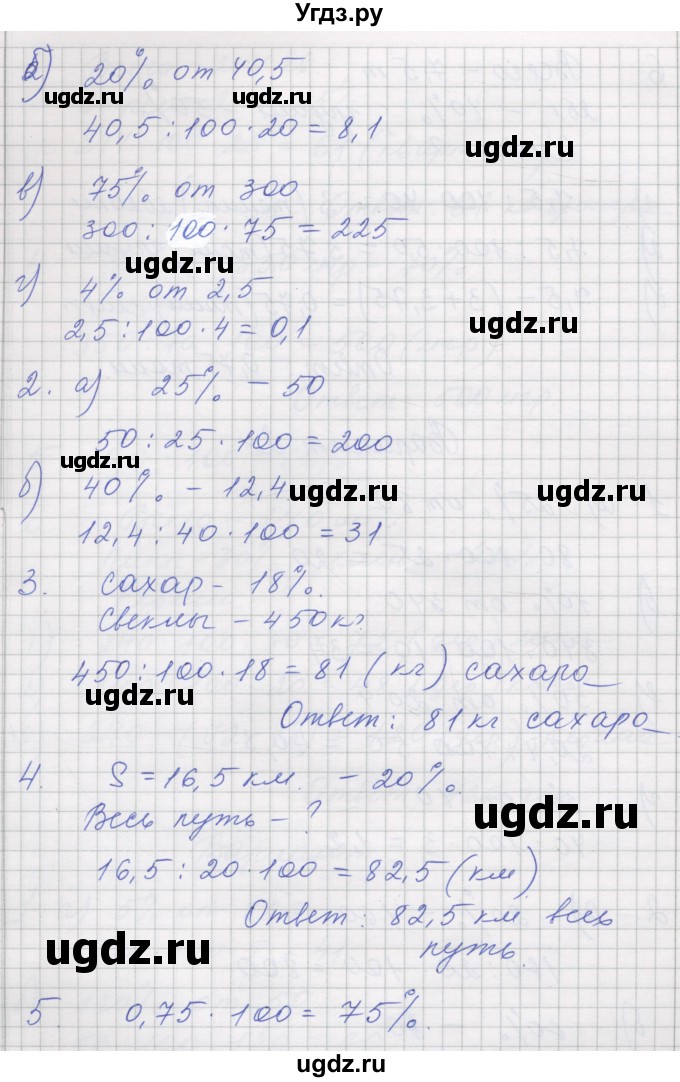 Угдз.ру
б) 20% от 40,5
ugdz.ru ugdz.ru
40,5 : 100 · 20 = 8,1
ugdz.ru
в) 75% от 300
300 : 100 · 75 = 225
ugdz.ru
г) 4% от 2,5
2,5 : 100 · 4 = 0,1
ugdz.ru
2. а) 25% – 50
50 : 25 · 100 = 200
ugdz.ru
б) 40% – 12,4.
ugdz.ru
12,4 : 40 · 100 = 31
3. Сахар – 18%.
Свеклы – 450 кг.
450 : 100 · 18 = 81 (кг) сахара
ugdz.ru
Ответ: 81 кг сахара
4. S = 16,5 км. – 20%.
Весь путь – ?
ugdz.ru
16,5 : 20 · 100 = 82,5 (км)
Ответ: 82,5 км весь
ugdz.ru
путь.
5. 0,75 · 100 = 75%.
ugdz.ru